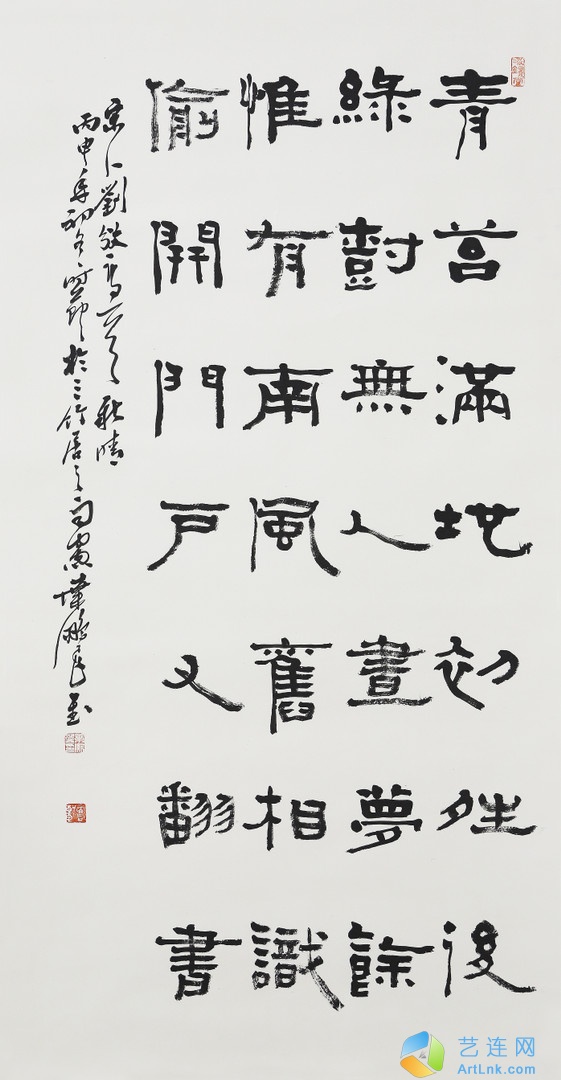 青苔滿地初夝後
綠尌無人晝夢餘
惟有南風舊相識
偷開門戶又翻書
宋人劉攽 秋晴
丙申年初冬時節於三竹居之南窗
艺连网
ArtLnk.com